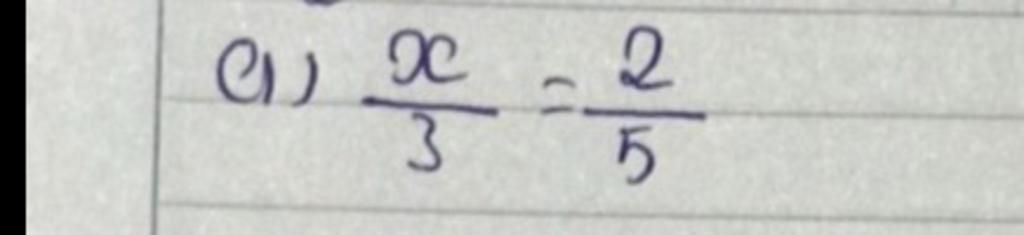 a) x/3 = 2/5